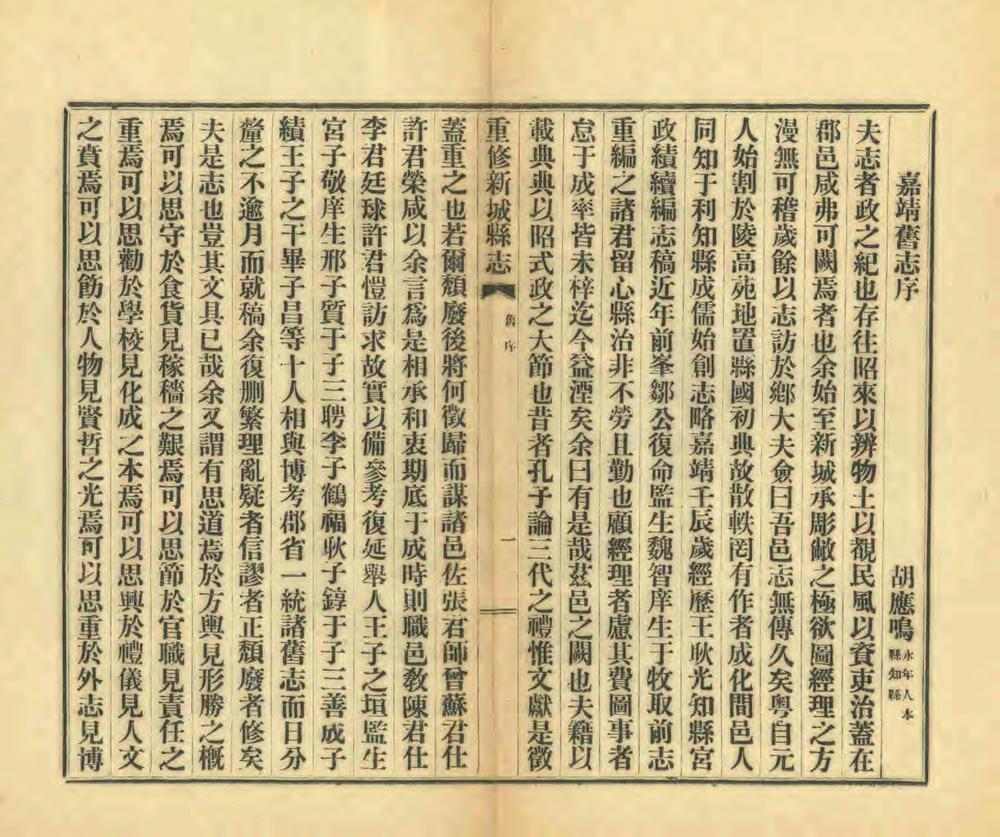 嘉靖舊志序
胡應鳴永年人本縣知縣
夫志者政之紀也存往昭來以辨物土以覩民風以資吏治蓋在
郡邑咸弗可闕焉者也余始至新城承彫敝之極欲圖經理之方
漫無可稽歲餘以志訪於鄉大夫僉曰吾邑志無傳久矣粤自元
人始割於陵高苑地置縣國初典故散軼罔有作者成化間邑人
同知于利知縣成儒始創志略嘉靖壬辰歲經歷王耿光知縣宮
政績續編志稿近年前峯鄒公復命監生魏智庠生于牧取前志
重編之諸君留心縣治非不勞且勤也顧經理者慮其費圖事者
怠于成率皆未梓迄今益湮矣余曰有是哉茲邑之闕也夫籍以
載典典以昭式政之大節也昔者孔子論三代之禮惟文獻是徵
重修新城縣志
舊序
一
蓋重之也若爾頹廢後將何徵歸而謀諸邑佐張君師曾蘇君仕
許君榮咸以余言爲是相承和衷期底于成時則職邑教陳君仕
李君廷球許君愷訪求故實以備參考復延舉人王子之垣監生
宮子敬庠生邢子質于子三聘李子鶴福耿子錞于子三善成子
績王子之干畢子昌等十人相與博考郡省一統諸舊志而日分
釐之不逾月而就稿余復删繁理亂疑者信謬者正頹廢者修矣
夫是志也豈其文具已哉余又謂有思道焉於方輿見形勝之概
焉可以思守於食貨見稼穡之艱焉可以思節於官職見責任之
重焉可以思勸於學校見化成之本焉可以思興於禮儀見人文
之賁焉可以思飭於人物見賢哲之光焉可以思重於外志見博